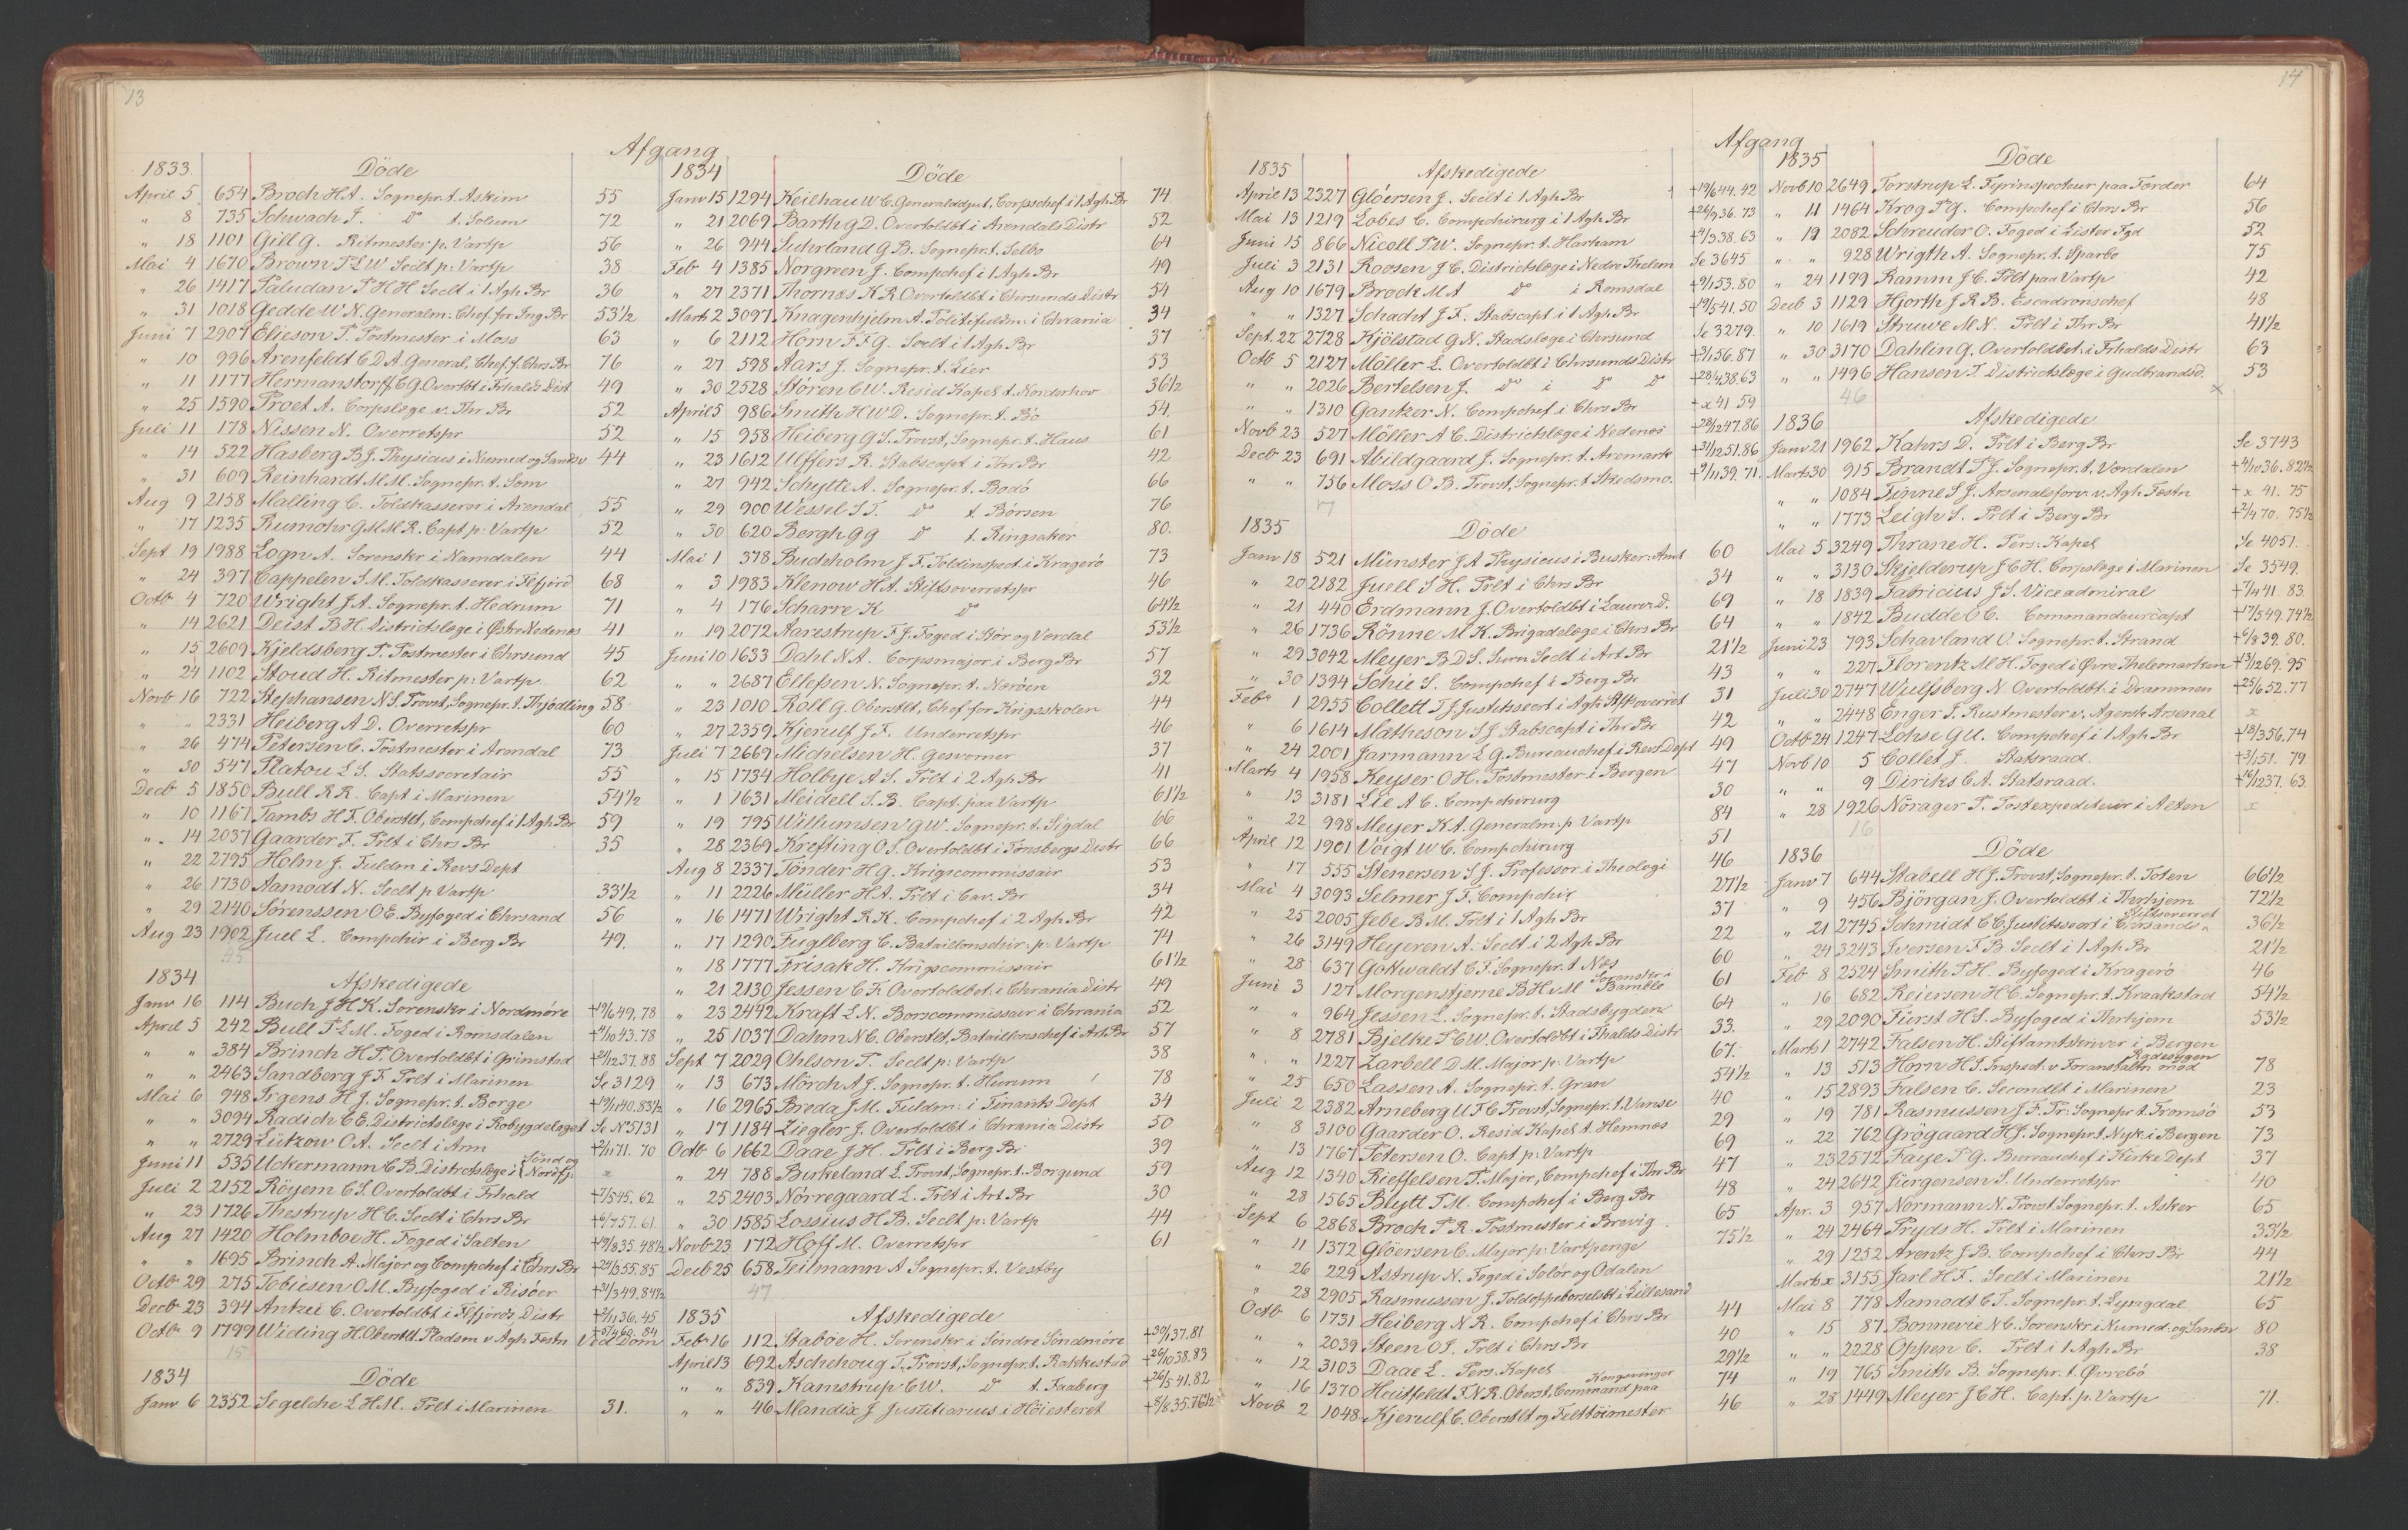 13
Afgang
1833. Döde
April 5 654 Broch H A. Sognepr. t. Askim 55
" 8 735 Schwach J. do t. Solum 72
" 18 1101 Gill G. Ritmester p. Vartp 56
Mai 4 1670 Brown P L W Seclt p: Vartp 38
" 26 1417 Paludan P H H Seclt i 1 Agh Br 36
" 31 1018 Gedde W N. Generalm: Chef for Ing Br 53½
Juni 7 2907 Elieson P. Postmester i Moss 63
" 10 996 Arenfeldt C D A. General, Chef f. Chrs Br 76
" 11 1177 Hermanstorff C G. Overtbt i Frhalds Dist 49
" 25 1590 Proet A. Corpslæge v. Thr Br 52
Juli 11 178 Nissen N. Overretspr 52
" 14 522 Hasberg B J. Physicus i Numed og Sandsv 44
" 31 609 Reinhardt M M. Sognepr. t. Som
Aug 9 2158 Malling C. Toldkasserer i Arendal 55
" 17 1235 Rumohr G M M R. Capt p: Vartp 52
Sept 19 1988 Logn A. Sorenskr i Namdalen 44
" 24 397 Cappelen S. M. Toldkasserer i Flfjörd 68
Octb 4 720 Wright J A. Sognepr. t. Hedrum 71
" 14 2621 Deist B H. Districtslæge i Østre Nedenæs 41
" 15 2609 Kjeldsberg P. Postmester i Chrsund 45
" 24 1102 Stoud H. Ritmester p: Vartp 62
Novb 16 722 Stephansen N S. Provst, Sognepr. t. Thjödling 58
" " 2331 Heiberg A D. Overretspr 60
" 26 474 Petersen C. Postmester i Arendal 73
" 30 547 Platou L S. Statssecretair 55
Decb 5 1850 Bull R R. Capt i Marinen 54½
" 10 1167 Tambs H F. Oberstlt, Compchef i 1 Agh Br 59
" 14 2037 Gaarder F. Prlt i Chrs Br 35
" 22 2795 Holm J. Fuldm i Revs Dept
" 26 1730 Aamodt N. Seclt p Vartp 33½
" 29 2140 Sørenssen O E. Byfoged i Chrsand 56
Aug 23 1902 Juel L. Compchir i Berg Br 49.
45
1834 Afskedigede
Janv 16 114 Buch J H K. Sorenskr i Nordmöre +9/6 49, 78
April 5 242 Bull P L M. Foged i Romsdalen +9/10 43. 78
" " 384 Brinch H P. Overtoldbt i Grimstad +21/12 37. 88
" " 2463 Sandberg J F Prlt i Marinen Se 3129
Mai 6 948 Irgens H J. Sognepr. t. Borge +19/11 40. 83½
" " 3094 Radich C E. Districtslæge i Robygdelaget Se No 5131
" " 2729 Lützow O A. Seclt i Arm +21/11 71. 70
Juni 11 535 Uckermann C B. Districtslæge i Sönd og Nordfj. x
Juli 2 2152 Röyem C S. Overtoldbt i Frhald +7/5 45. 62
" 23 1726 Thestrup H C. Seclt i Chrs Br +6/7 57. 61.
Aug 27 1420 Holmboe H. Foged i Salten +9/8 35. 48½
" " 1695 Brinch A. Major og Compchef i Chrs Br +24/3 55. 85
Octb 29 275 Tobiesen O M. Byfoged i Risöer +31/3 49. 84½
Decb 23 394 Antzee C. Overtoldbt i Flfjords Distr +2/11 36. 45
Octb 9 1799 Widing H. Oberstlt. Pladsm v Agh Festn Ved Dom +5/4 60. 84
15
1834 Döde
Janv 6 2352 Segelche L H M. Prlt i Marinen 31.
1834 Döde
Janv 15 1294 Keilhau W C. Generaladjut, Corpschef i 1 Agh Br 74
" 21 2069 Barth G D. Overtoldbt i Arendals Distr 52
" 26 944 Suhrland G B. Sognepr. t. Selbo 64
Feb 4 1385 Norgreen J. Compchef i 1 Agh Br 49
" 27 2371 Thornæs K R Overtoldbt i Chrsunds Distr 54
Marts 2 3097 Knagenhjelm A. Politifuldm: i Chrania 34
" 6 2112 Horn F F G. Seclt i 1 Agh Br 37
" 27 598 Aars J. Sognepr. t. Lier 53
" 30 2528 Stören C W. Resid Kapel t. Norderhov 36½
April 5 986 Smith H W D. Sognepr. t. Bö 54.
" 15 958 Heiberg G S. Provst, Sognepr. t. Haus 61
" 23 1612 Ulffers R. Stabscapt i Thr Br 42
" 27 942 Schytte A. Sognepr. t. Bodö 66
" 29 900 Wessel S T. do t. Börsen 76
" 30 620 Bergh G G do t. Ringsaker 80.
Mai 1 378 Buchholm J. F. Toldinspect. i Kragerö 73
" 3 1983 Klenow H A. Stiftsoverretspr 46
" 4 176 Scharre K do 64½
" 19 2072 Aarestrup F J. Foged i Stör og Værdal 53½
Juni 10 1633 Dahl N A. Corpsmajor i Berg Br 57
" " 2687 Ellefsen N. Sognepr. t. Neröen 32
" 23 1010 Röll G. Oberstlt, Chef for Krigsskolen 44
" 27 2359 Kjerulf J. F. Underretspr 46
Juli 7 2669 Michelsen H. Gesvorner 37
" 15 1734 Holbye A S. Prlt i 2 Agh Br 41
" 1 1631 Meidell S. B. Capt. paa Vartp 61½
" 19 795 Willumsen G W. Sognepr. t. Sigdal 66
" 28 2369 Krefting O S. Overtoldbt i Tönsbergs Distr 66
Aug 8 2337 Tönder H G. Krigscommissair 53
" 11 2226 Müller H A. Prlt i Cav. Br 34
" 16 1471 Wright R K. Compchef i 2 Agh Br 42
" 17 1290 Fuglberg C. Bataillonschir: p: Vartp 74
" 18 1777 Frisak H. Krigscommissair 61½
" 21 2130 Jessen C F. Overtoldbet. i Chrania Distr 49
" 23 2442 Kraft L N. Borscommissair i Chrania 52
" 25 1037 Dahm N C. Oberstlt, Bataillonschef i Art Br 57
Sept 7 2029 Ohlson P. Seclt p: Vartp 38
" 13 673 Mörch A J. Sognepr. t. Hurum 78
" 16 2965 Breda J M. Fuldm: i Finants Dept 34
" 17 1184 Ziegler J. Overtoldbt i Chrania Distr 50
Octb 6 1662 Daae J H. Prlt i Berg Br 39
" 24 788 Birkeland L. Provst, Sognepr. t. Borgund 59
" 25 2403 Nörregaard L. Prlt i Art Br 30
" 30 1585 Lossius H B. Seclt p: Vartp 44
Novb 23 172 Hoff M. Overretspr 61
Decb 25 658 Teilmann A Sognepr. t. Vestby
47
1835 Afskedigede
Feb 16 112 Staboe H. Sorenskr i Söndre Söndmöre +30/1 37. 81
April 13 692 Aschehoug T. Provst, Sognepr. t. Rakkestad +26/10 38. 83
" " 839 Kamstrup C W. do t. Faaberg +26/5 41. 82
" " 46 Mandix J Justitiarius i Höiesteret +8/8 35. 76½
14
Afgang
1835 Afskedigede
April 13 2327 Glöersen J. Seclt i 1 Agh Br +19/6 44. 42
Mai 13 1219 Lobes C. Compchirurg i 1 Agh Br +26/9 36. 73
Juni 15 866 Nicoll P W. Sognepr. t. Harham +4/3 38. 63
Juli 3 2131 Roosen J C. Districtslæge i Nedre Thelem Se 3645
Aug 10 1679 Brock M A do i Romsdal +9/1 53. 80
" " 1327 Schadet J F. Stabscapt i 1 Agh Br +19/5 41. 50
Sept. 22 2728 Kjölstad G N. Stadslæge i Chrsund Se 3279.
Octb 5 2127 Möller L. Overtoldbt i Chrsunds Distr +3/1 56. 87
" " 2026 Bertelsen J. do i do do +28/4 38. 63
" " 1310 Gantzer N. Compchef i Chrs Br + x 41 59
Novb 23 527 Möller A C. Districtslæge i Nedenæs +28/12 47. 86
Decb 23 691 Abildgaard J. Sognepr. t. Aremark +31/12 51. 86
" " 756 Moss O B. Provst, Sognepr. t Skedsmo. +9/11 39. 71.
17
1835 Döde
Janv 18 521 Münster J A Physicus i Busker: Amt 60
" 20 2182 Juell S H. Prlt i Chrs Br 34
" 21 440 Erdmann J. Overtoldbt i Laurv. D. 69
" 26 1736 Rönne M K. Brigadelæge i Chrs Br 64
" 29 3042 Meyer B D S. Surn Seclt i Art Br 21½
" 30 1394 Schie S. Compchef i Berg Br 43
Feb 1 2955 Collett P J, Justitssecr t i Agh Stftoverret 31
" 6 1614 Matheson S J. Stabscapt i Thr Br 42
" 24 2001 Jarmann L G. Bureauchef i Revs Dept 49
Marts 4 1958 Keyser O H. Postmester i Bergen 47
" 13 3181 Lie A C. Compchirurg 30
" 22 998 Meyer K A. Generalm. p Vartp 84
April 12 1901 Voigt W C. Compchirurg 51
" 17 555 Stenersen S J. Professor i Theologi 46
Mai 4 3093 Selmer J F. Compchir 27½
" 25 2005 Jebe B M. Prlt i 1 Agh Br 37
" 26 3149 Heyeren A. Seclt i 2 Agh Br 22
" 28 637 Gottwaldt C F. Sognepr. t Næs 60
Juni 3 127 Morgenstjerne B H v M Sorenskr i Bamble 61
" " 964 Jessen L. Sognepr. t. Stadsbygden 64
" 8 2781 Bjelke P C W. Overtoldbt i Fhalds Distr 33.
" " 1227 Zarbell D M. Major p: Vartp 67.
" 25 650 Lassen A. Sognepr. t. Gran 54½
Juli 2 2382 Arneberg U F C Provst, Sognepr. t. Vanse 40
" 8 3100 Gaarder O. Resid Kapel t. Hemnæs 29
" 13 1767 Petersen O. Capt p: Vartp 69
Aug 12 1340 Rieffelsen P. Major, Compchef i Thr Br 47
" 28 1565 Blytt P M. Compchef i Berg Br 48
Sept 6 2868 Broch P R. Postmester i Brevig 65
" 11 1372 Glöersen C. Major p: Vartpenge 75½
" 26 229 Astrup N. Foged i Solör og Odalen
" 28 2905 Rasmussen J. Toldoppeborselsbt i Lillesand
Octb 6 1731 Heiberg N R. Compchef i Chrs Br 44
" " 2039 Steen O J. Prlt i Chrs Br 40
" 12 3103 Daae L. Pers. Kapel 29½
" 16 1370 Huitfeldt F. N R. Oberst, Command paa Kongsvinger 74
Novb 2 1048 Kjerulf C. Oberstlt og Felttöimester 46
1835 Döde
Novb 10 2649 Torstrup L. Fyrinspecteur paa Færder 64
" 11 1464 Krog P G. Compchef i Chrs Br 56
" 19 2082 Schreuder O. Foged i Lister Fgd 52
" " 928 Wrigth A. Sognepr. t. Sparbo 75
" 24 1199 Ramm J C. Prlt paa Vartp 42
Decb 3 1129 Hjorth J R B. Escadronschef 48
" 10 1619 Struwe M N. Prlt i Thr Br 41½
" 30 3170 Dahlin G. Overtoldbet. i Frhalds Distr 63
" " 1496 Hansen T. Districtslæge i Gudbrandsd. 53
46 x
1836 Afskedigede
Janv 21 1962 Kahrs D. Prlt i Berg Br Se 3743
Marts 30 915 Brandt P J. Sognepr. t. Værdalen +4/10 36. 82½
" " 1084 Finne S J. Arsenalsforv. v. Agh Festn + x 41. 75
" " 1773 Leigh S. Prlt i Berg Br +2/4 70. 75½
Mai 5 3249 Thrane H. Pers: Kapel Se 4051.
" " 3130 Skjelderup J C H. Corpslæge i Marinen Se 3549.
" 18 1839 Fabricius J S. Viceadmiral +7/4 41. 83.
" " 1842 Budde O C. Commandeurcapt +17/5 49. 74½
Juni 23 793 Schavland O. Sognepr. t. Strand +6/2 39. 80.
" " 227 Florentz M H. Foged i Øvre Thelemarken +13/12 69. 95
Juli 30 2747 Wulfsberg N. Overtoldbt. i Drammen +25/6 52. 77
" " 2448 Enger P. Rustmester v. Agersh Arsenal x
Octb 24 1247 Lohse G U. Compchef i 1 Agh Br +18/3 56. 74
Novb 10 5 Collet J. Statsraad. +3/1 51. 79
" " 9 Diriks C A. Statsraad. +16/12 37. 63.
" 28 1926 Norager P. Postexpediteur i Alten x
16
1836 Döde
Janv 7 644 Stabell H J. Provst, Sognepr. t. Toten 66½
" 9 456 Björgan J. Overtoldbt i Thrhjem 72½
" 21 2745 Schmidt C C Justitssecr t i Chrsands Stiftsoverret 36½
" 24 3243 Iversen F B Seclt i 1 Agh Br 21½
Feb 8 2524 Smith P H. Byfoged i Kragerö 46
" 16 682 Reiersen H C. Sognepr. t. Kraakstad 54½
" 29 2090 Fürst H S. Byfoged i Thrhjem 53½
Marts 1 2742 Falsen H. Stiftamtskriver i Bergen
" 13 513 Horn H J. Inspect. v Foranstaltn mod Radesygen 78
" 15 2893 Falsen C. Secondlt i Marinen 23
" 19 781 Rasmussen J. F. Pr: Sognepr. t. Tromsö 53
" 22 762 Grögaard H J. Sognepr. t. Nyk: i Bergen 73
" 23 2572 Faye P G. Bureauchef i Kirke Dept 37
" 24 2642 Jürgensen S. Underretspr 40
Apr. 3 957 Normann N. Provst Sognepr. t. Asker 65
" 24 2464 Pryds H. Prlt i Marinen 33½
" 29 1252 Arentz J B. Compchef i Chrs Br 44
Marts x 3155 Jarl H F. Seclt i Marinen 21½
Mai 8 778 Aamodt C T. Sognepr. t. Lyngdal 65
" 15 87 Bonnevie N C. Sorenskr i Numed: og Sandsv 80
" " 2228 Oppen C. Prlt i 1 Agh Br 38
" 19 765 Smith B. Sognepr. t. Øvrebö
" 28 1449 Meyer J C H. Capt. p: Vartp 71.